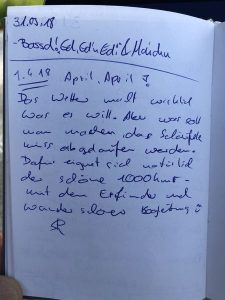 31.03.18
- Boasd! Ed, Edn Edi &
1.4.18 April, April!
Das Wetter macht wirklich
was es will. Aber was soll
man machen, das
muss abgelaufen werden.
Dafür eignet sich natürlich
der schöne 1000 hm -
mit dem Erfinder und
wunderschöner Begleitung